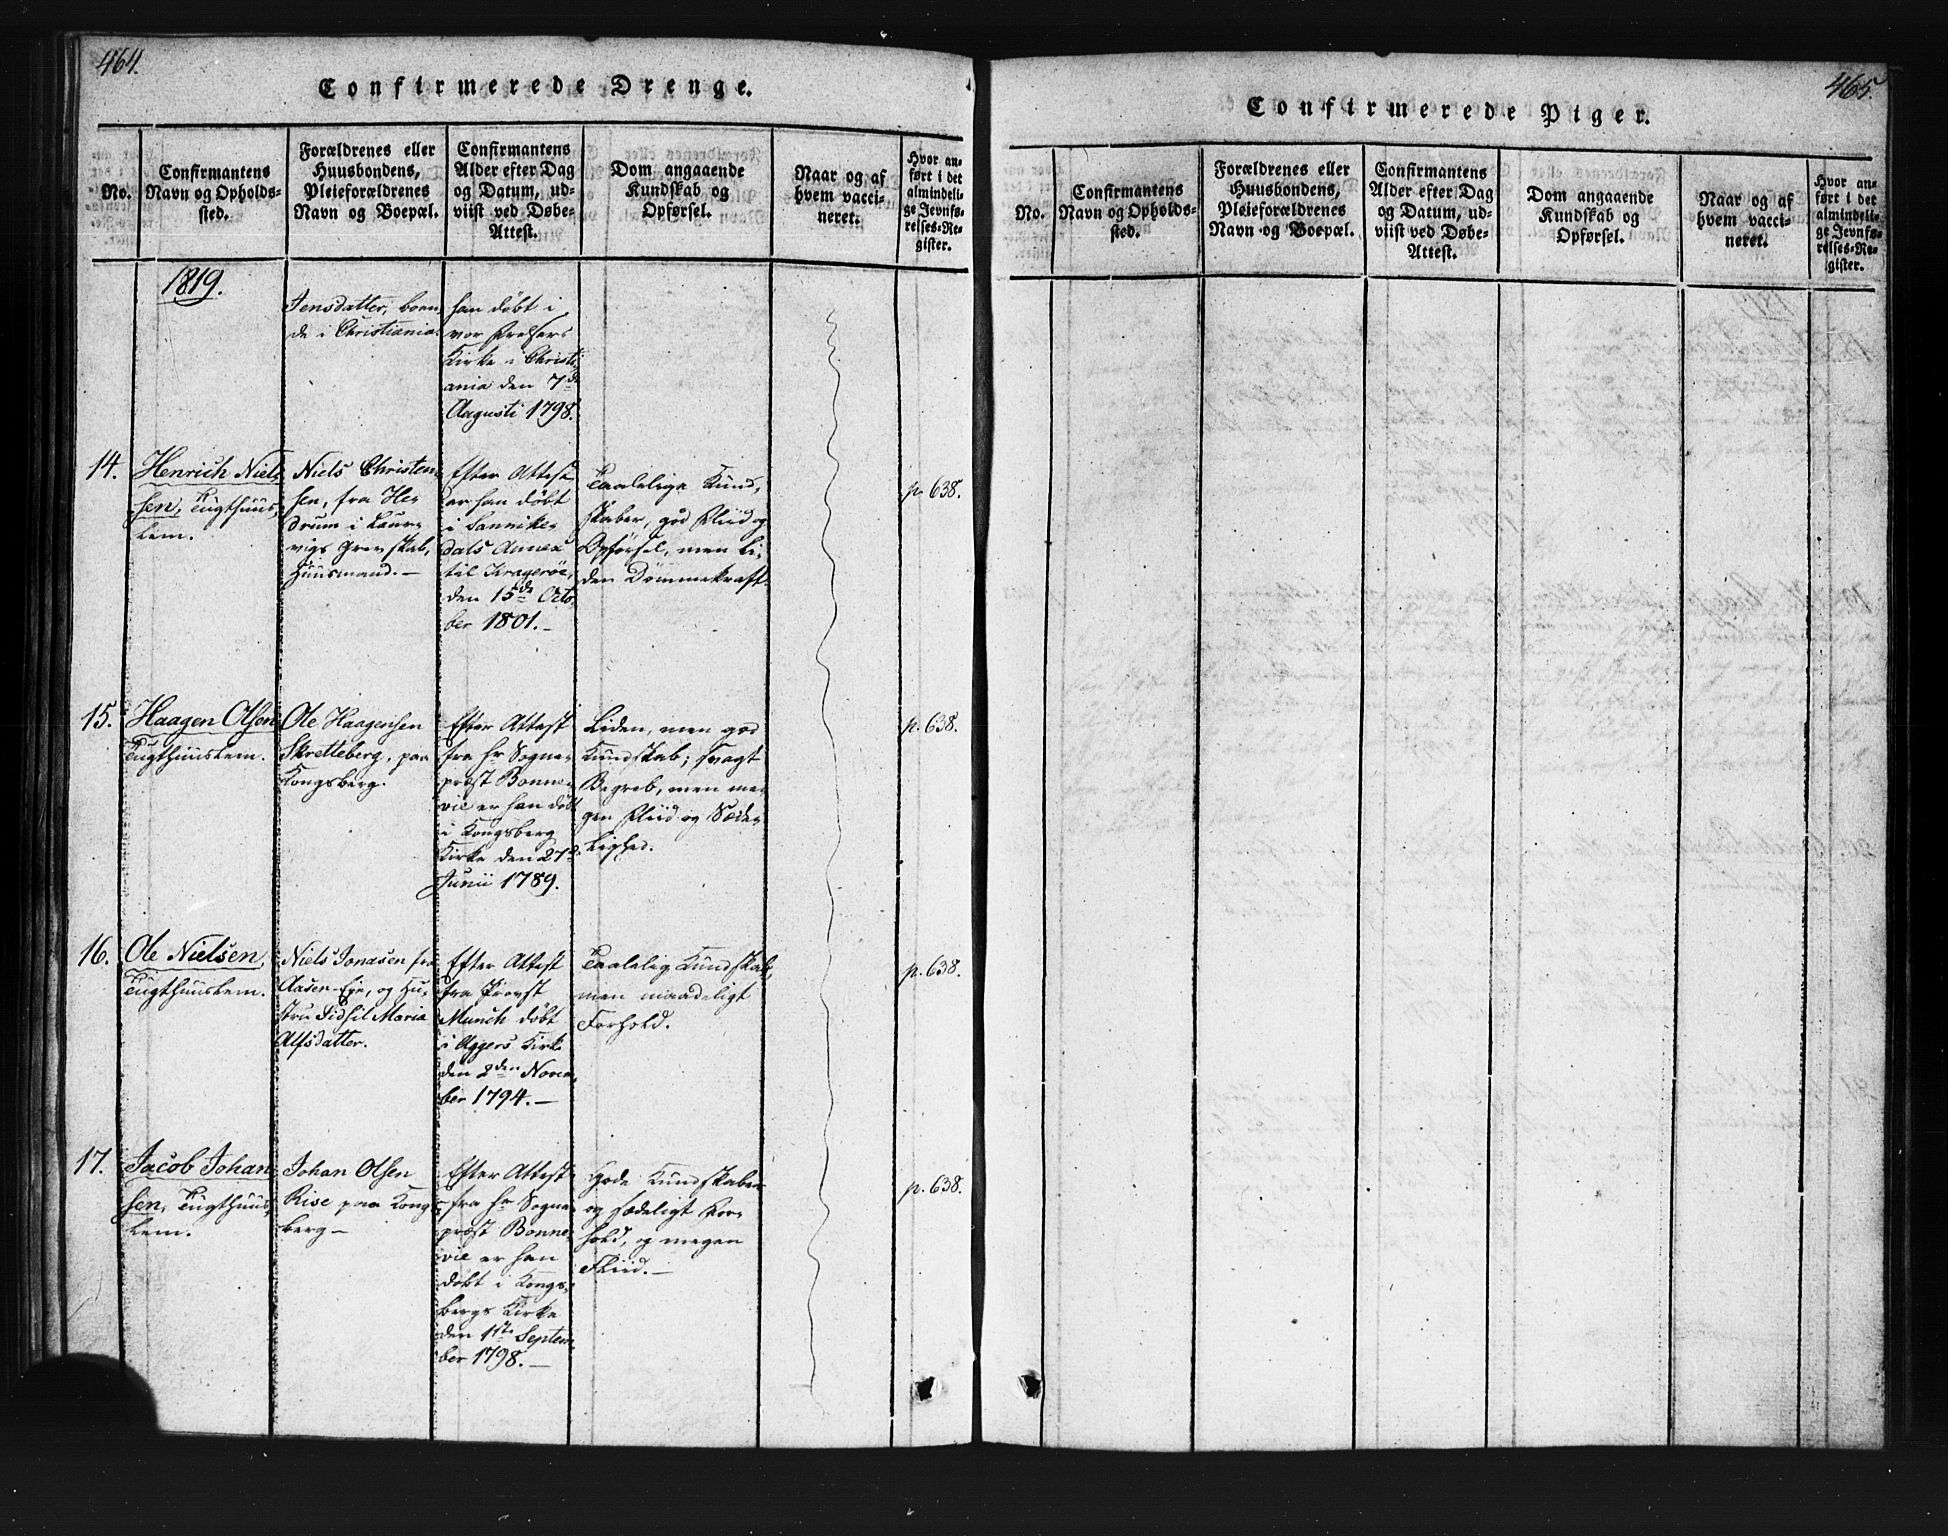 464.
Confirmerede Drenge.
No.
Confirmantens
Navn og Opholds-
sted.
Forældrenes eller
Huusbondens,
Pleieforældrenes
Navn og Boepæl.
Confirmantens
Alder efter Dag
og Datum, ud-
viist ved Døbe-
Attest.
Dom angaaende
Kundskab og
Opførsel.
Naar og af
hvem vacci-
neret.
Hvor an-
ført i det
almindeli-
ge Jevnfø-
relses-Re-
gister.
1819.
Jensdatter, boen-
de i Christiania.
han döbt i
vor Frelsers
Kirke i Christi-
ania den 7de
Augusti 1798.
14.
Henrich Niel-
sen, Tugthuus-
lem.
Niels Christen-
sen, fra He-
drum i Laur-
vigs Grevskab,
Huusmand.—
Efter Attest
er han döbt
i Sannike-
dals Annex
til Krageröe,
den 15de Octo-
ber 1801.—
Taalelige Kund-
skaber, god Fliid og
Opförsel, men li-
den Dömmekraft.
p. 638.
15.
Haagen Olsen
Tugthuuslem.
Ole Haagensen
Skretteberg, paa
Kongsberg.
Efter Attest
fra Hr Sogne-
præst Bonne-
vie er han döbt
i Kongsberg
Kirke den 27de
Junii 1789.
Liden, men god
Kundskab; svagt
Begreb, men me-
gen Fliid og Sæde-
lighed.
p. 638.
16.
Ole Nielsen,
Tugthuuslem.
Niels Jonasen fra
Aasen-Eje, og Hu-
stru Sidsil Maria
Alfsdatter.
Efter Attest
fra Provst
Munch döbt
i Aggers Kirke
den 2den Novem-
ber 1794.—
Taalelig Kundskab,
men maadeligt
Forhold.
p. 638.
17.
Jacob Johan-
sen, Tugthuus-
lem.
Johan Olsen
Rise paa Kongs-
berg—
Efter Attest
fra Hr Sogne-
præst Bonne-
vie er han
döbt i Kongs-
bergs Kirke
den 1ste Septem-
ber 1798.—
Gode Kundskaber
og sædeligt For-
hold, og megen
Fliid.—
p. 638.
465.
Confirmerede Piger.
No.
Confirmantens
Navn og Opholds-
sted.
Forældrenes eller
Huusbondens,
Pleieforældrenes
Navn og Boepæl.
Confirmantens
Alder efter Dag
og Datum, ud-
viist ved Døbe-
Attest.
Dom angaaende
Kundskab og
Opførsel.
Naar og af
hvem vacci-
neret.
Hvor an-
ført i det
almindeli-
ge Jevnfø-
relses-Re-
gister.